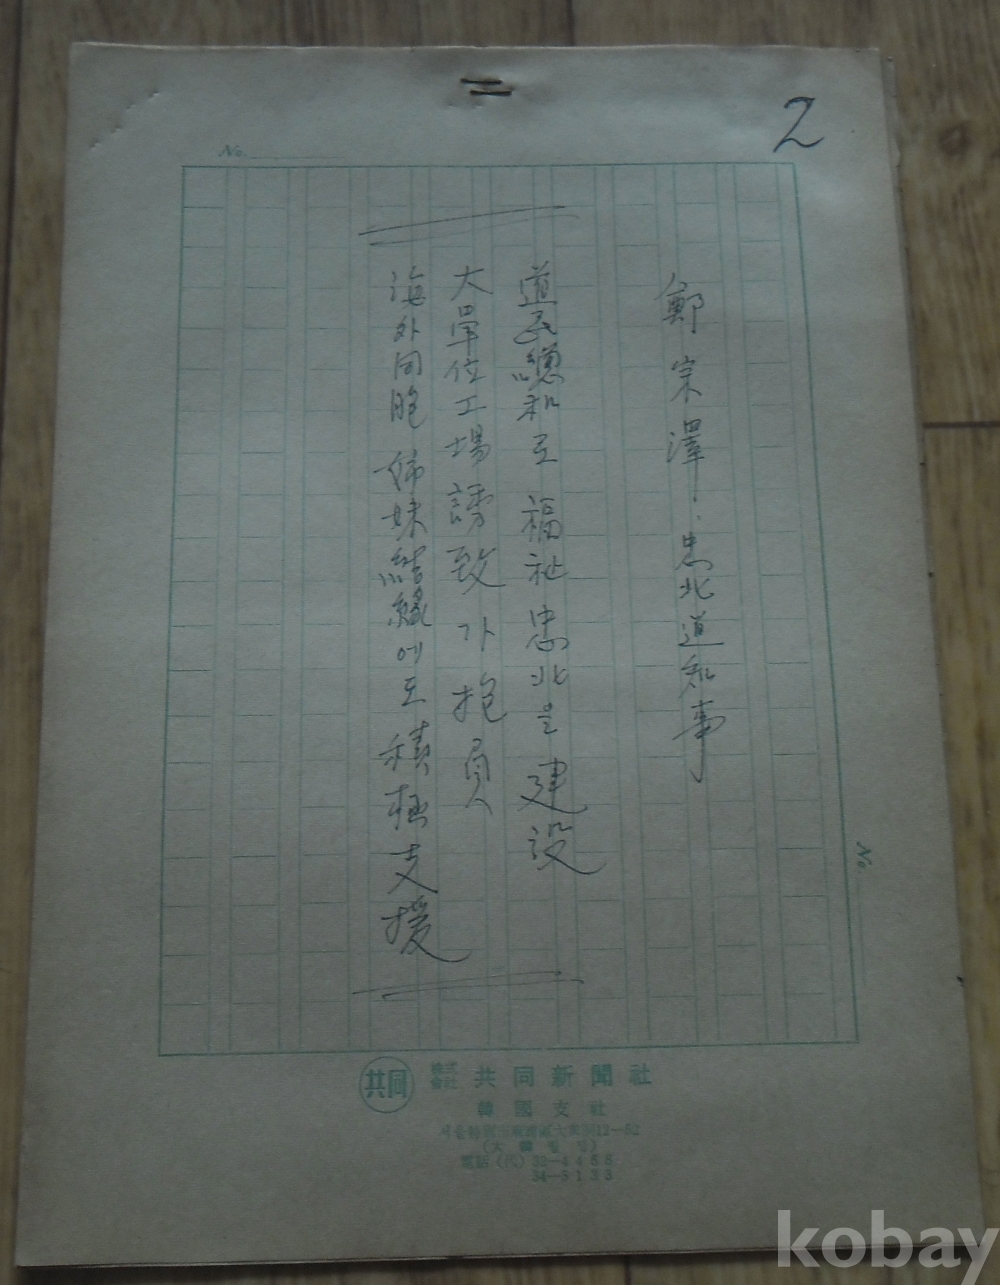 2
No.
鄭宗澤·忠北道知事
道民總和로 福祉忠北을 建設
大單位工場誘致가 抱負
海外同胞 姉妹結緣에도 積極支援
No.
共同 株式會社 共同新聞社
韓國支社
電話(代)
kobay